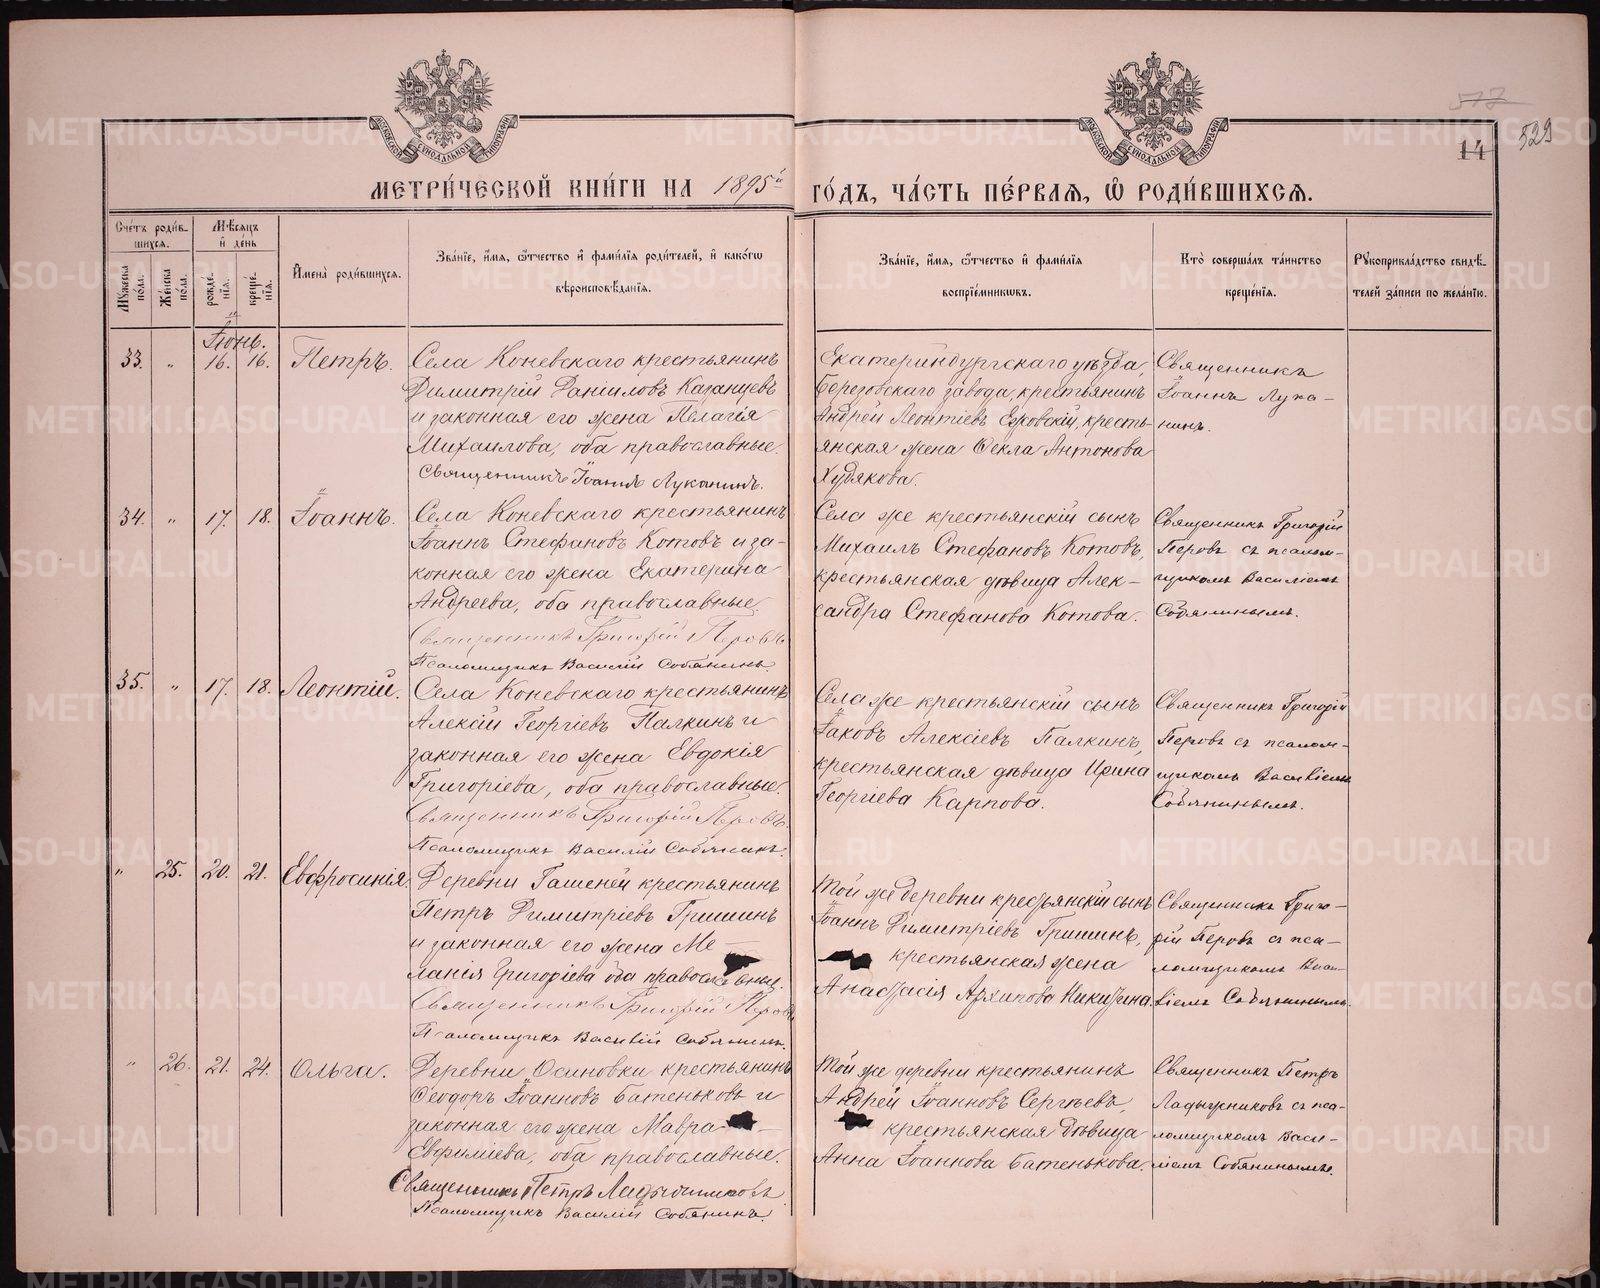 517
529
14
МОСКОВСКОЙ СѴНОДАЛЬНОЙ ТИПОГРАФІИ
МОСКОВСКОЙ СѴНОДАЛЬНОЙ ТИПОГРАФІИ
МЕТРИ́ЧЕСКОЙ КНИ́ГИ НА 1895й ГО́ДЪ, ЧА́СТЬ ПЕ́РВАЯ, Ѡ РОДИ́ВШИХСЯ.
Сче́тъ роди́вшихся.
Мꙋжеска по́ла.
Же́нска по́ла.
Мѣ́сяцъ и҆ де́нь
рожде́нїѧ.
креще́нїѧ.
И҆мена̀ роди́вшихся.
Зва́нїе, и҆́мѧ, ѻ҆́тчество и҆ фами́лїѧ роди́телей, и҆ како́гѡ
вѣроисповѣ́данїѧ.
Зва́нїе, и҆́мѧ, ѻ҆́тчество и҆ фами́лїѧ
воспрїе́мникѡвъ.
Кто̀ соверша́лъ та́инство
креще́нїѧ.
Рꙋкоприкла́дство свидѣ́телей за́писи по жела́нїю.
Іюнь.
33. " 16. 16. Петръ.
Села Коневскаго крестьянинъ
Димитрій Даніиловъ Казанцевъ
и законная его жена Пелагія
Михаилова, оба православные.
Священникъ Іоаннъ Луканинъ.
Екатеринбургскаго уѣзда,
Березовскаго завода, крестьянинъ
Андрей Леонтіевъ Ежовскій, кресть-
янская жена Ѳекла Антонова
Худякова.
Священникъ
Іоаннъ Лука-
нинъ.
34. " 17. 18. Іоаннъ.
Села Коневскаго крестьянинъ
Іоаннъ Стефановъ Котовъ и за-
конная его жена Екатерина
Андреева, оба православные.
Священникъ Григорій Перовъ
Псаломщикъ Василій Собянинъ.
Села же крестьянскій сынъ
Михаилъ Стефановъ Котовъ,
крестьянская дѣвица Алек-
сандра Стефанова Котова.
Священникъ Григорій
Перовъ съ псалом-
щикомъ Василіемъ
Собянинымъ.
35. " 17. 18. Леонтій.
Села Коневскаго крестьянинъ
Алексій Георгіевъ Палкинъ и
законная его жена Евдокія
Григоріева, оба православные.
Священникъ Григорій Перовъ.
Псаломщикъ Василій Собянинъ.
Села же крестьянскій сынъ
Іаковъ Алексіевъ Палкинъ,
крестьянская дѣвица Ирина
Георгіева Карпова.
Священникъ Григорій
Перовъ съ псалом-
щикомъ Василіемъ
Собянинымъ.
" 25. 20. 21. Евфросинія.
Деревни Гашеней крестьянинъ
Петръ Димитріевъ Гришинъ
и законная его жена Ме-
ланія Григоріева оба православные.
Священникъ Григорій Перовъ
Псаломщикъ Василій Собянинъ.
Той же деревни крестьянскій сынъ
Іоаннъ Димитріевъ Гришинъ,
крестьянская жена
Анастасія Архипова Никитина.
Священникъ Григо-
рій Перовъ съ пса-
ломщикомъ Васи-
ліемъ Собянинымъ.
" 26. 21. 24. Ольга.
Деревни Осиновки крестьянинъ
Ѳеодоръ Іоанновъ Батеньковъ и
законная его жена Мавра
Евфиміева, оба православные.
Священникъ Петръ Ладыжниковъ
Псаломщикъ Василій Собянинъ.
Той же деревни крестьянинъ
Андрей Іоанновъ Сергѣевъ,
крестьянская дѣвица
Анна Іоаннова Батенькова.
Священникъ Петръ
Ладыжниковъ съ пса-
ломщикомъ Васи-
ліемъ Собянинымъ.